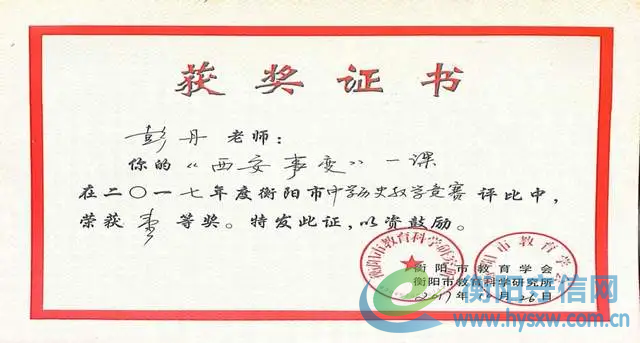 获奖证书
彭丹老师：
你的《西安事变》一课
在二〇一七年度衡阳市中学历史教学竞赛评比中，
荣获壹等奖。特发此证，以资鼓励。
衡阳市教育科学研究所
衡阳市教育学会
衡阳市教育学会
衡阳市教育科学研究所
2017年 月26日
衡阳安信网
www.hysxw.com.cn